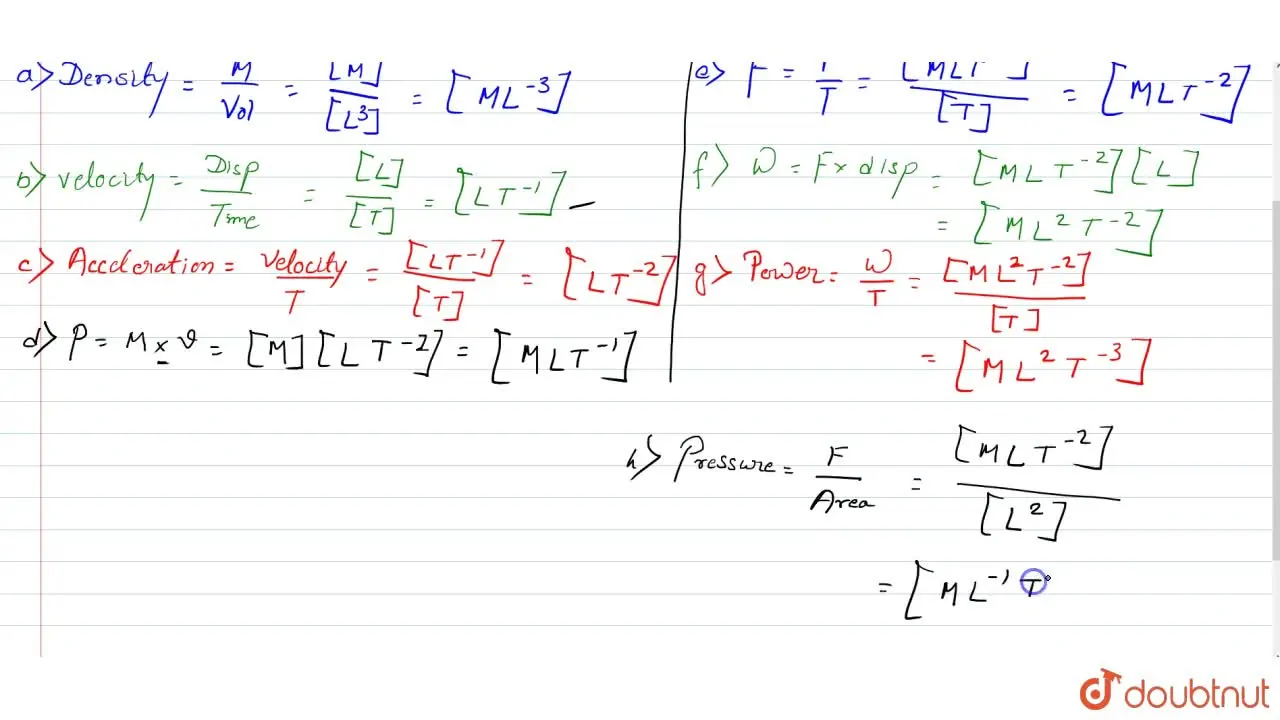 a> Density = M/Vol = [M]/[L³] = [ML⁻³]
b> Velocity = Disp/Time = [L]/[T] = [LT⁻¹]
c> Acceleration = Velocity/T = [LT⁻¹]/[T] = [LT⁻²]
d> P = M × v = [M][LT⁻²] = [MLT⁻¹]
e> F = /T = [MLT ]/[T] = [MLT⁻²]
f> W = F× disp = [MLT⁻²][L]
= [ML²T⁻²]
g> Power = W/T = [ML²T⁻²]/[T]
= [ML²T⁻³]
h> Pressure = F/Area = [MLT⁻²]/[L²]
= [ML⁻¹T
doubtnut